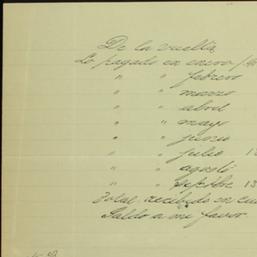 De la vuelta
Lo pagado en enero
" " febrero
" " marzo
" " abril
" " mayo
" " junio
" " julio 1
" " agosto
" " Sepbre. 13
Total recibido en
Saldo a mi favor